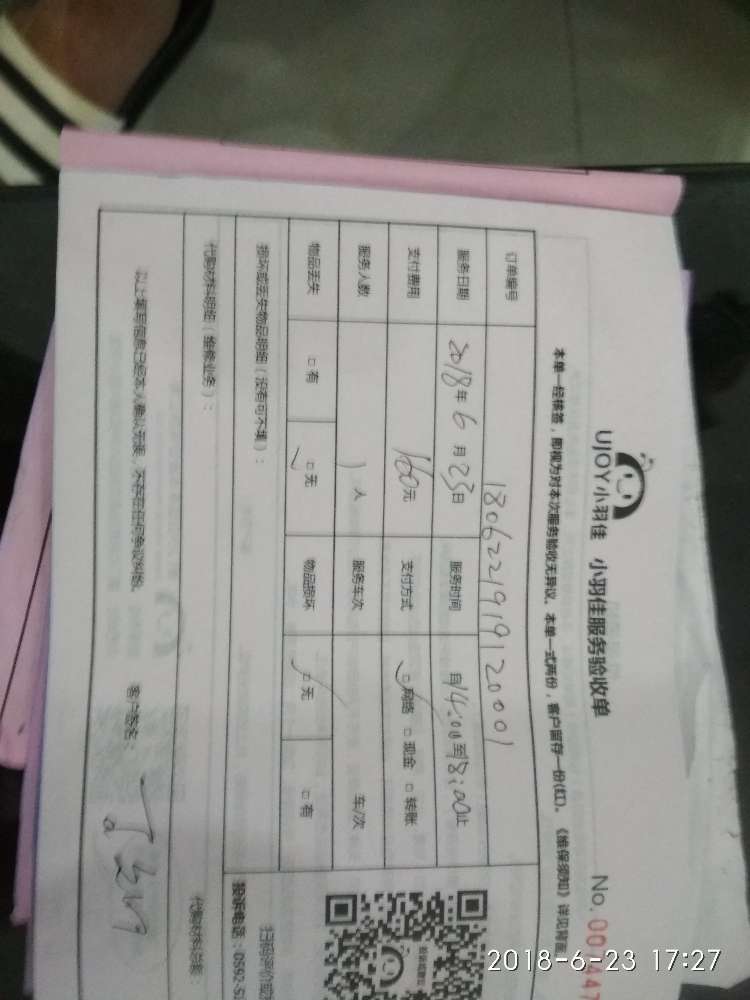 UJOY小羽佳 小羽佳服务验收单
No. 00 447
本单一经核签，即视为对本次服务验收无异议。本单一式两份，客户留存一份(红)。《维保须知》详见背面
订单编号 1806221919120001
服务日期 2018年6月23日 服务时间 自14:00至18:00止
支付费用 160元 支付方式 □网络 □现金 □转账
服务人数 1人 服务车次 车/次
物品丢失 □有 □无 物品损坏 □无 □有
损坏或丢失物品明细（没有可不填）：
代购材料明细（维修业务）： 代购材料总额：
以上填写信息已经本人确认无误，不存在任何争议纠纷。 客户签名：
扫码评价或
投诉电话：0592-5
2018-6-23 17:27